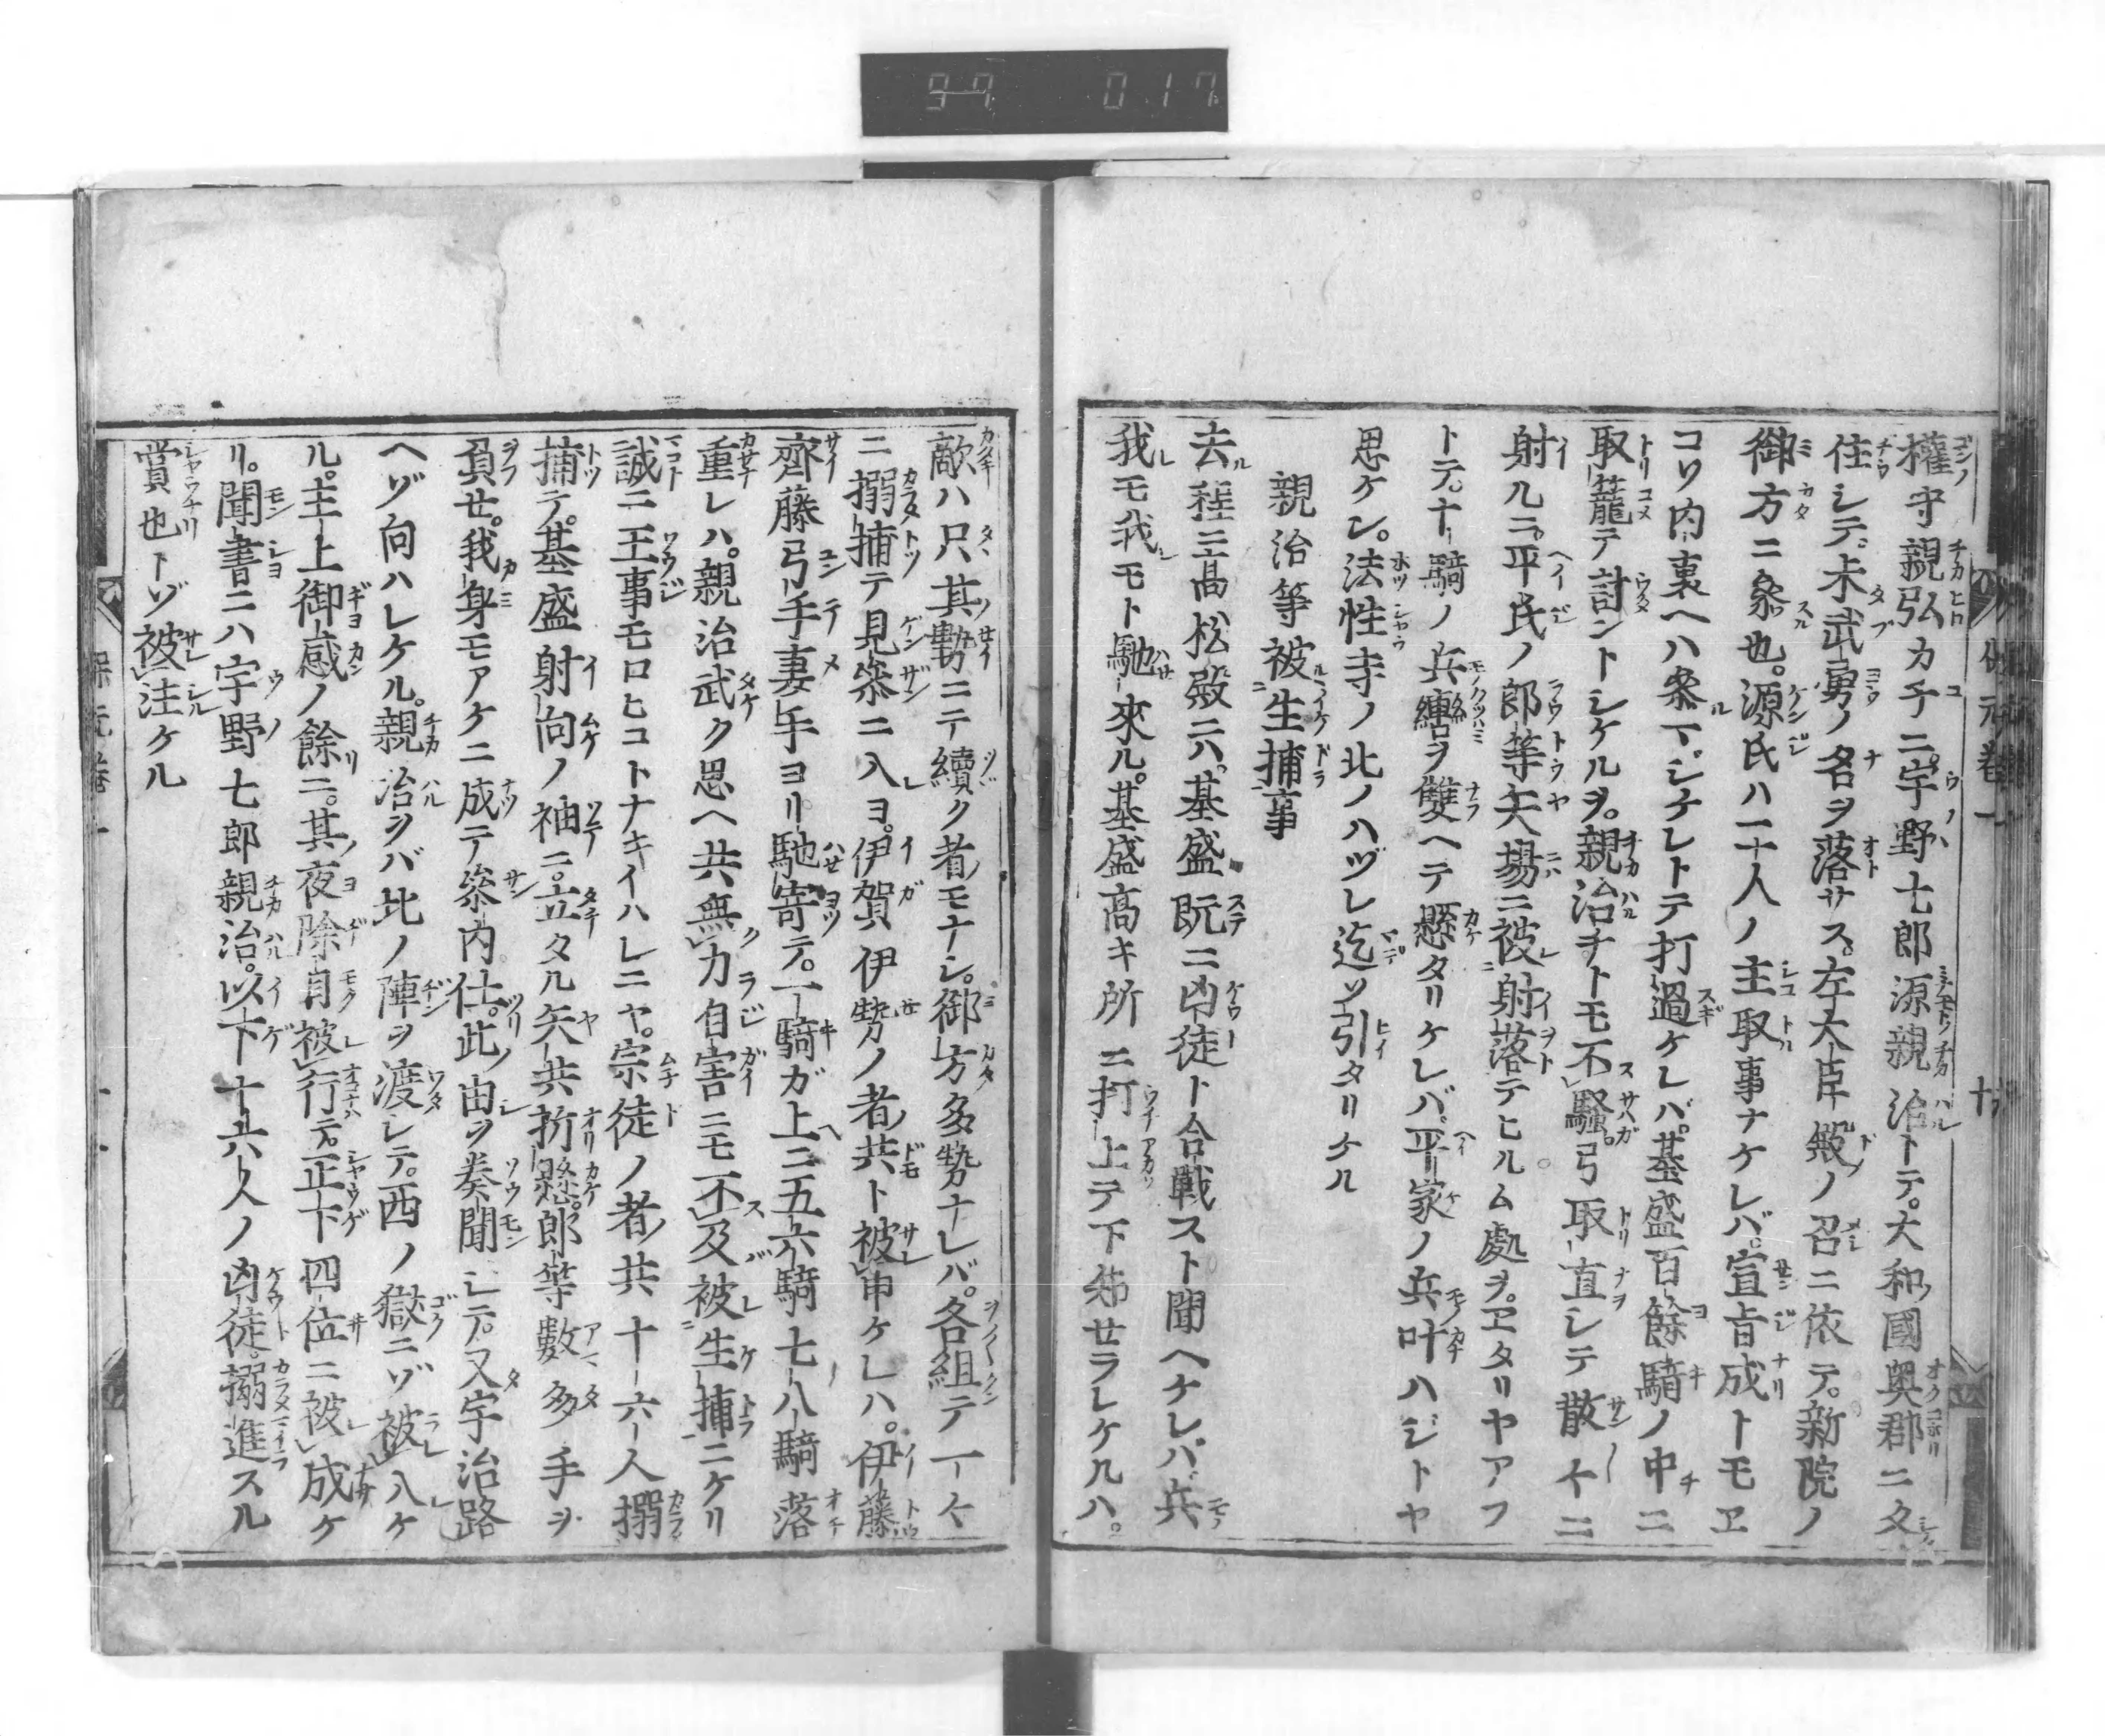 97 017
權守親弘カ子ニ宇野七郎源親治トテ。大和國奥郡ニ久
住シテ。未武勇ノ名ヲ落サス。左大臣殿ノ召ニ依テ。新院ノ
御方ニ參也。源氏ハ二十人ノ主取事ナケレバ。宣旨成トモヱ
コソ内裏ヘハ參マジケレトテ打過ケレバ。基盛百餘騎ノ中ニ
取籠テ討ントシケルヲ。親治チトモ不騒。弓取直シテ散々ニ
射ルニ。平氏ノ郎等矢場ニ被射落テヒルム處ヲ。ヱタリヤアフ
トテ。十騎ノ兵轡ヲ雙ヘテ懸タリケレバ。平家ノ兵叶ハジトヤ
思ケン。法性寺ノ北ノハヅレ迄ソ引タリケル
親治等被生捕事
去程ニ高松殿ニハ。基盛既ニ凶徒ト合戰スト聞ヘケレバ。兵
我モ我モト馳來ル。基盛高キ所ニ打上テ下知セラレケルハ。
敵ハ只其勢ニテ續ク者モナシ。御方多勢ナレバ。各組テ一々
ニ搦捕テ見參ニ入ヨ。伊賀伊勢ノ者共ト被申ケレハ。伊藤
齊藤弓手妻手ヨリ馳寄テ。一騎ガ上ニ五六騎七八騎落
重レハ。親治武ク思ヘ共無力自害ニモ不及被生捕ニケリ
誠ニ王事モロヒコトナキイハレニヤ。宗徒ノ者共十六人搦
捕テ。基盛射向ノ袖ニ。立タル矢共折懸。郎等數多手ヲ
負セ。我身モアケニ成テ參内仕。此由ヲ奏聞シテ。又宇治路
ヘゾ向ハレケル。親治ヲバ北ノ陣ヲ渡シテ。西ノ獄ニゾ被入ケ
ル。主上御感ノ餘ニ。其夜除目被行テ。正下四位ニ被成ケ
リ。聞書ニハ宇野七郎親治。以下十六人ノ凶徒。搦進スル
賞也トゾ被注ケル